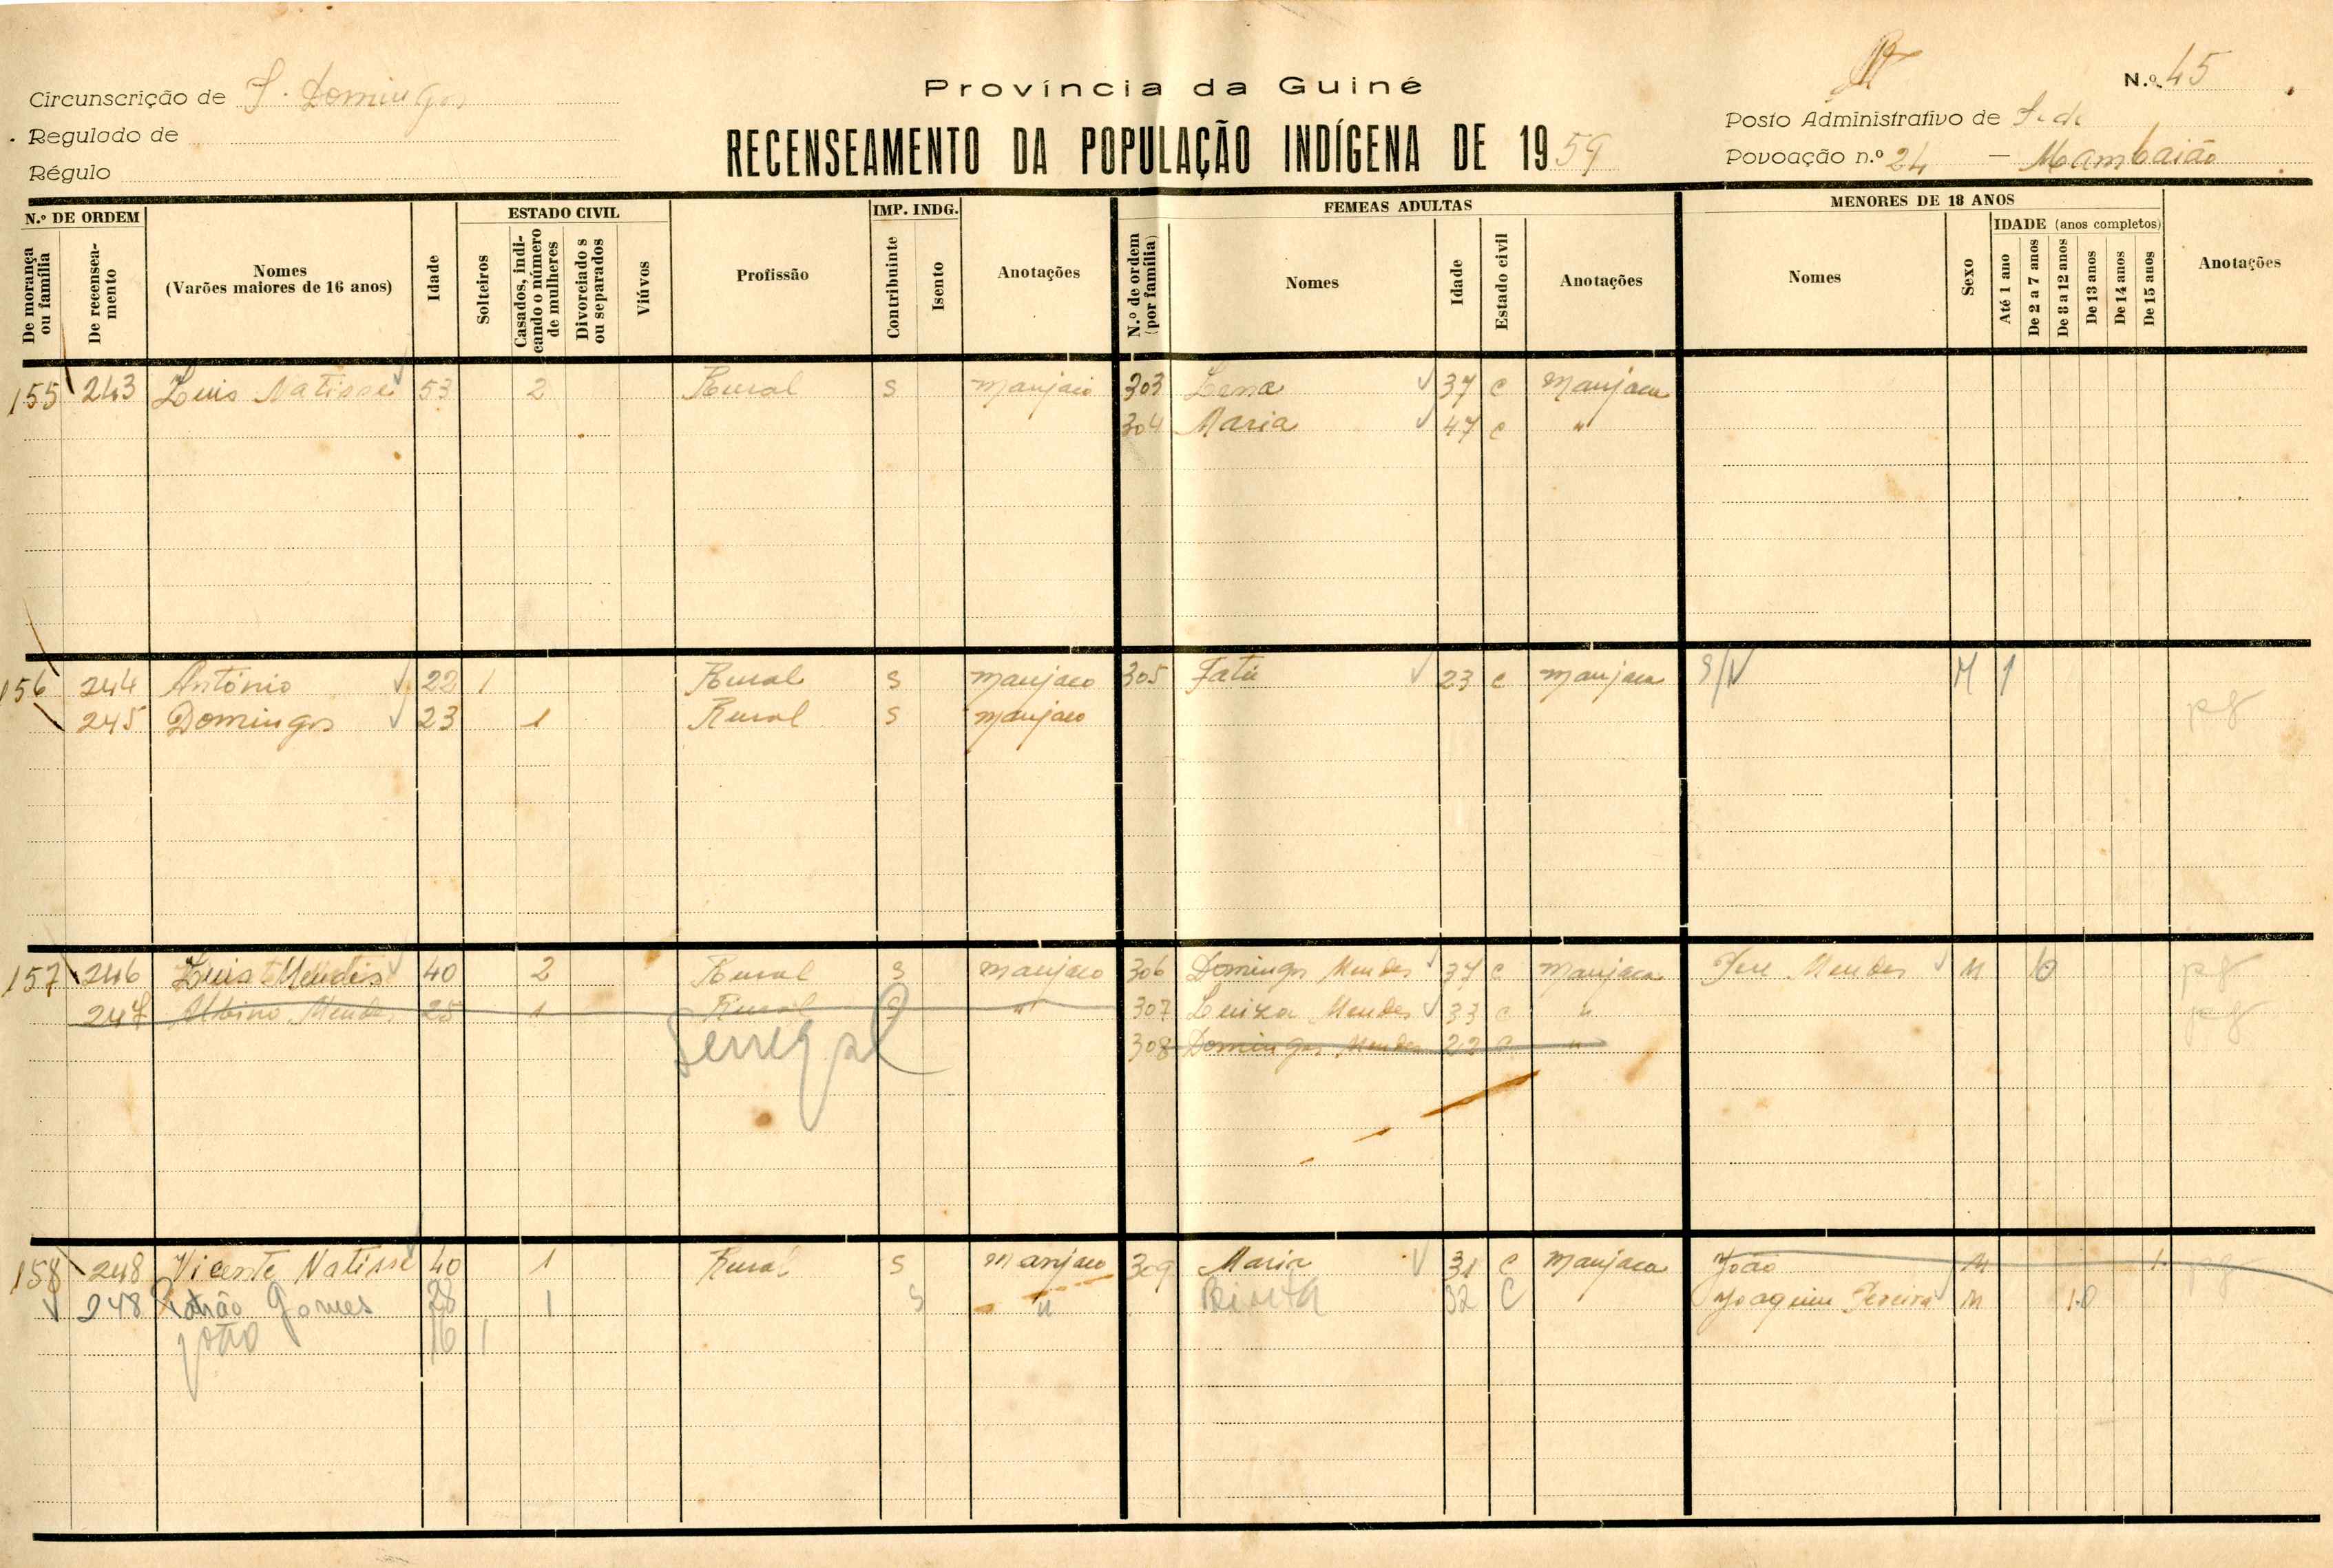 N.º 45
Província da Guiné
Circunscrição de S. Domingos
Posto Administrativo de Sede
Regulado de
RECENSEAMENTO DA POPULAÇÃO INDÍGENA DE 1959
Povoação n.º 24 — Mambaião
Régulo
N.º DE ORDEM
De morança ou família
De recenseamento
Nomes
(Varões maiores de 16 anos)
Idade
ESTADO CIVIL
Solteiros
Casados, indicando o número de mulheres
Divorciado s ou separados
Viúvos
Profissão
IMP. INDG.
Contribuinte
Isento
Anotações
FEMEAS ADULTAS
N.º de ordem (por família)
Nomes
Idade
Estado civil
Anotações
MENORES DE 18 ANOS
Nomes
Sexo
IDADE (anos completos)
Até 1 ano
De 2 a 7 anos
De 8 a 12 anos
De 13 anos
De 14 anos
De 15 anos
Anotações
155 243 Luis Natisse 53 2 Rural S manjaco 303 Lena 37 c manjaca
304 Maria 47 c "
156 244 António 22 1 Rural S manjaco 305 Fatú 23 c manjaca S/N M 1
245 Domingos 23 1 Rural S manjaco pg
157 246 Luis Mendes 40 2 Rural S manjaco 306 Domingos Mendes 37 c manjaca José Mendes M 6 pg
247 Albino Mendes 25 1 Rural S " 307 Luiza Mendes 33 c " pg
Senegal 308 Domingas Mendes 22 c "
158 248 Vicente Natisse 40 1 Rural S manjaco 309 Maria 31 c manjaca João M 1 pg
248 Gomes 28 1 S " 32 C Joaquim Pereira M 10
João 16 1